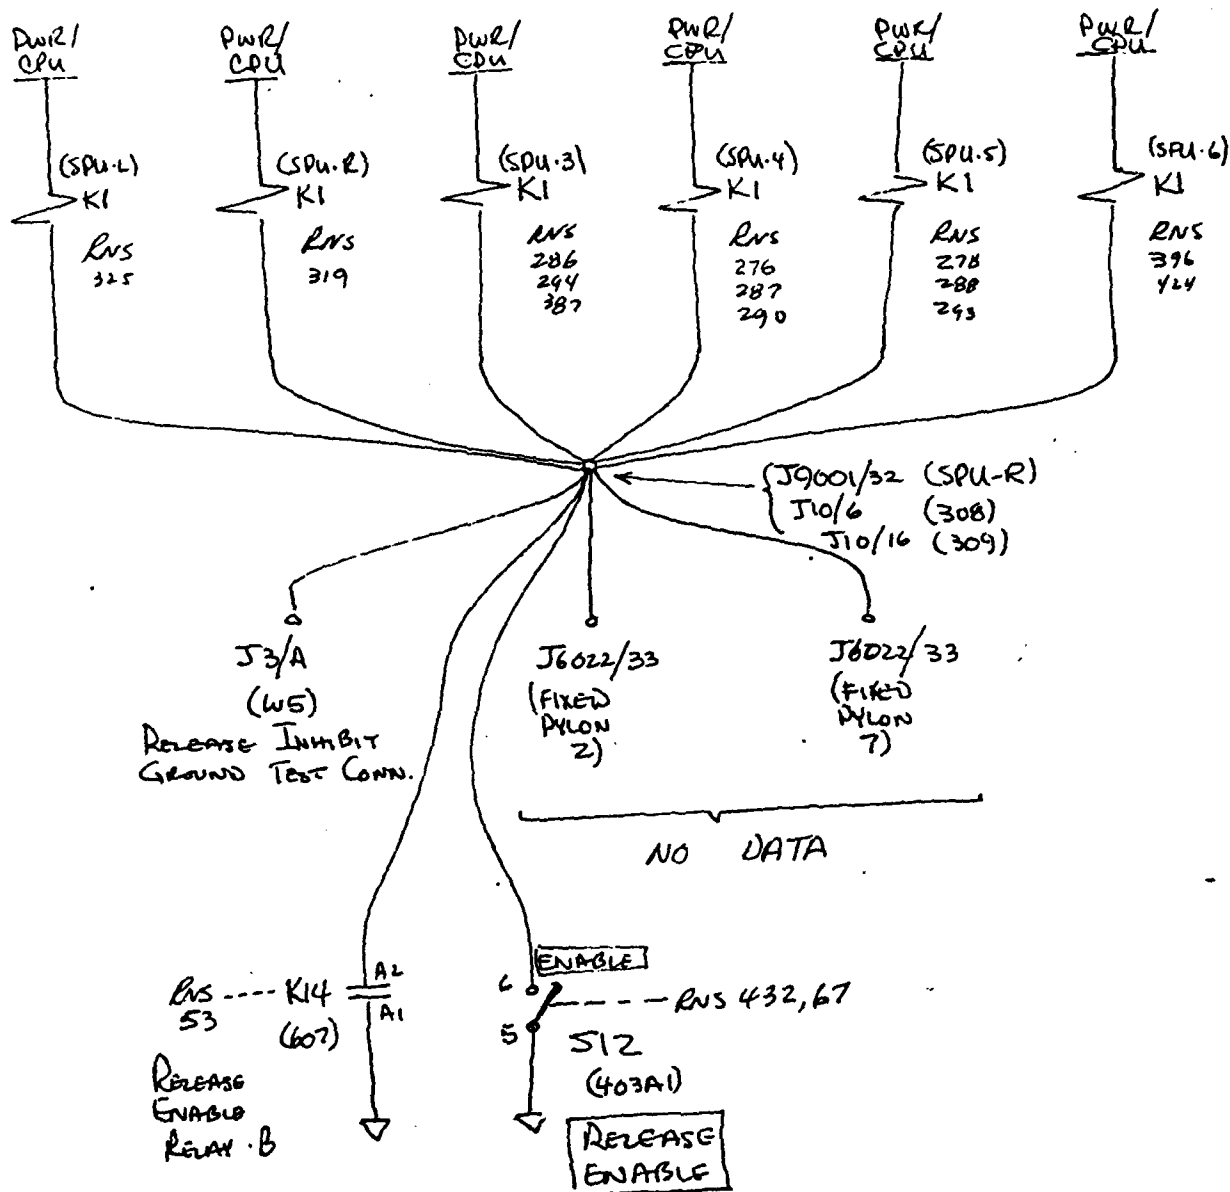 PWR/
CPU
PWR/
CPU
PWR/
CPU
PWR/
CPU
PWR/
CPU
PWR/
CPU
(SPU-L)
K1
RNS
325
(SPU-R)
K1
RNS
319
(SPU-3)
K1
RNS
286
294
387
(SPU-4)
K1
RNS
276
287
290
(SPU-5)
K1
RNS
278
288
293
(SPU-6)
K1
RNS
396
424
J9001/32 (SPU-R)
J10/6 (308)
J10/16 (309)
J3/A
(W5)
RELEASE INHIBIT
GROUND TEST CONN.
J6022/33
(FIXED
PYLON
2)
J6022/33
(FIXED
PYLON
7)
NO DATA
RNS ---- K14
53
(607)
A2
A1
RELEASE
ENABLE
RELAY-B
ENABLE
6
5
--- RNS 432,67
S12
(403A1)
RELEASE
ENABLE